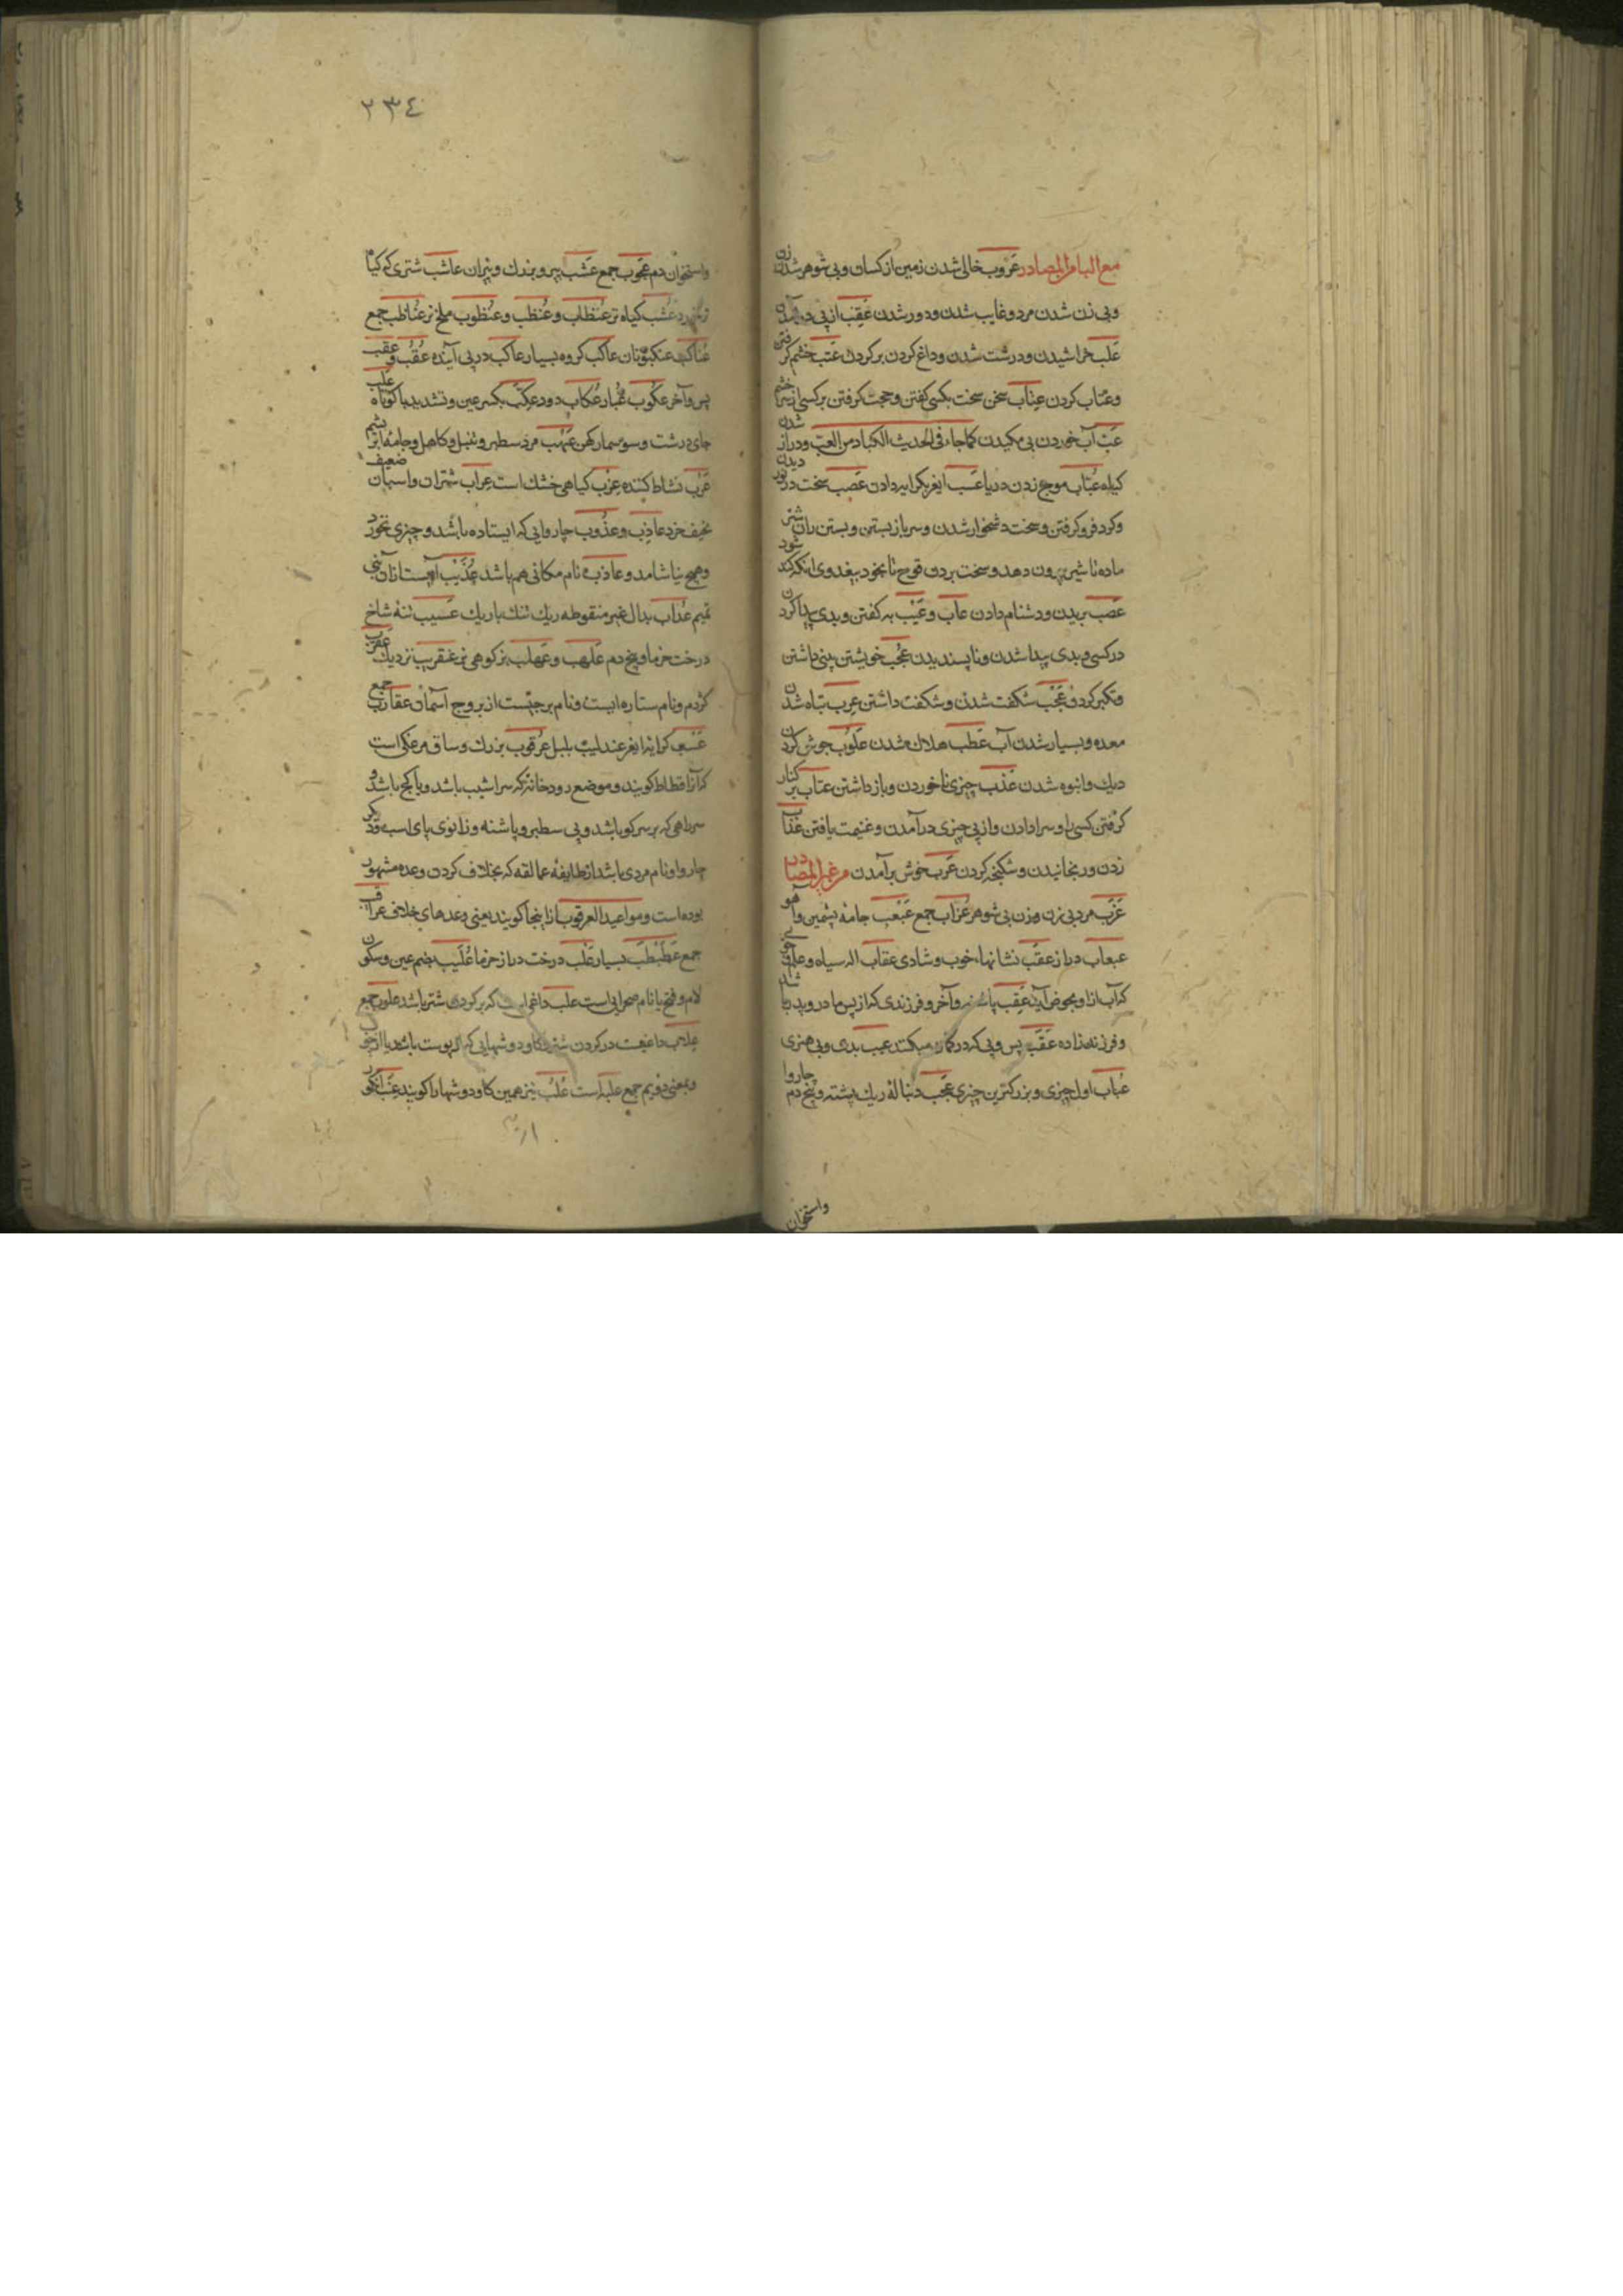 مع الباء من المصادر عزوب خالی شدن زمین از کسان و بی شوهر شدن زن
و بی زن شدن مرد و غایب شدن و دور شدن عقب از پی در آمدن
علب خراشیدن و درشت شدن و داغ کردن بر کردن عتب خشم کرفتن
و عتاب کردن عتاب سخن سخت بکسی کفتن و حجت کرفتن بر کسی از سر خشم
عب آب خوردن بی مکیدن کما جاء فی الحدیث الکباد من العب و دراز شدن
کیاه عباب موج زدن دریا عسب ایغر بکرا بر دادن عصب سخت در نور دیدن
و کرد فرو کرفتن و سخت دشخوار شدن و سر باز بستن و بستن ران شتر
ماده تا شیر بیرون دهد و سخت بردن قوج تا بخود بیغدوی انکه کند شود
عضب بریدن و دشنام دادن عاب و عیب به کفتن و بدی پیدا کردن
در کسی و بدی پیدا شدن و ناپسندیدن عجب خویشتن بینی داشتن
و تکبر کردن عجب شکفت شدن و شکفت داشتن عرب تباه شدن
معده و بسیار شدن آب عطب هلاک شدن علوب جوش کردن
دیک و انبوه شدن عذب چیزی ناخوردن و باز داشتن عتاب بر کنار
کرفتن کسی را و سرا دادن و از پی چیزی در آمدن و غنیمت یافتن عذاب
زدن و رنجانیدن و شکنجه کردن عرب خوش بر آمدن من غیر المصادر
عزب مرد بی زن و زن بی شوهر عزاب جمع عبعب جامه پشمین و آهو
عبعاب دراز عقب نشانهاء خوب و شادی عقاب اله سیاه و علم و
که آب ازو بحوض آید عقب پاشنه و آخر و فرزندی که از پس مادر و پدر
و فرزند زاده عقب پس و پی که در کمان میکنند عیب بدی و بی هنری
عباب اول چیزی و بزرکترین چیزی عجب دنباله ریک پشته و بیخ دم چاروا
واستخوان
٢٣٤
واستخوان دم عجوب جمع عشب پیر و بزرك و پیران عاشب شتری که کیاه
تر خورد عشب کیاه تر عنظاب و عنظب و عنظوب ملخ نر عناظب جمع
عناکب عنکبوتان عاکب کروه بسیار عاکب در پی آینده عقب و عقب
پس و آخر عکوب غبار عکاب دود عکب بکسر عین و تشدید با کوتاه علب
جای درشت و سوسمار کهن عیهب مرد سطبر و تنبل و کاهل و جامه از پشم
عرب نشاط کننده عرب کیاهی خشک است عراب شتران و اسبان
نحیف خرد عاذب و عذوب چاروایی که ایستاده باشد و چیزی نخورد
و هیچ نیاشامد و عاذب نام مکانی هم باشد عذیب آبیست از آن بنی
تمیم عداب بدال غیر منقوطه ریك تنك باریك عسیب تنه شاخ
درخت خرما و بیخ دم علهب و عهلب بز کوهی نر عنقریب نزدیك عقرب
کژدم و نام ستاره ایست و نام برجیست از بروج آسمان عقارب جمع
عسب کرایه ایغر عندلیب بلبل عرقوب بزرك و ساق مرغکی است
که آنرا قطاط کویند و موضع رودخانه که سراشیب باشد و یا کج باشد و
سر راهی که بر سر کوه باشد و پی سطبر و پاشنه و زانوی پای اسب و دکر
چاروا و نام مردی باشد از طایفه عمالقه که بخلاف کردن وعده مشهور
بوده است و مواعید العرقوب از اینجا کویند یعنی وعدهای خلاف عراقیب
جمع عطبطب بسیار علب درخت دراز خرما علیب بضم عین و سکون
لام و فتح یا نام صحرایی است علب داغی است که بر کردن شتر باشد علوب جمع
علاب داغیست در کردن شتر و کاو دوشهایی که از پوست باشد یا از چوب
و بمعنی دویم جمع علبه است علب نیز همین کاو دوشها را کویند عنب انکور